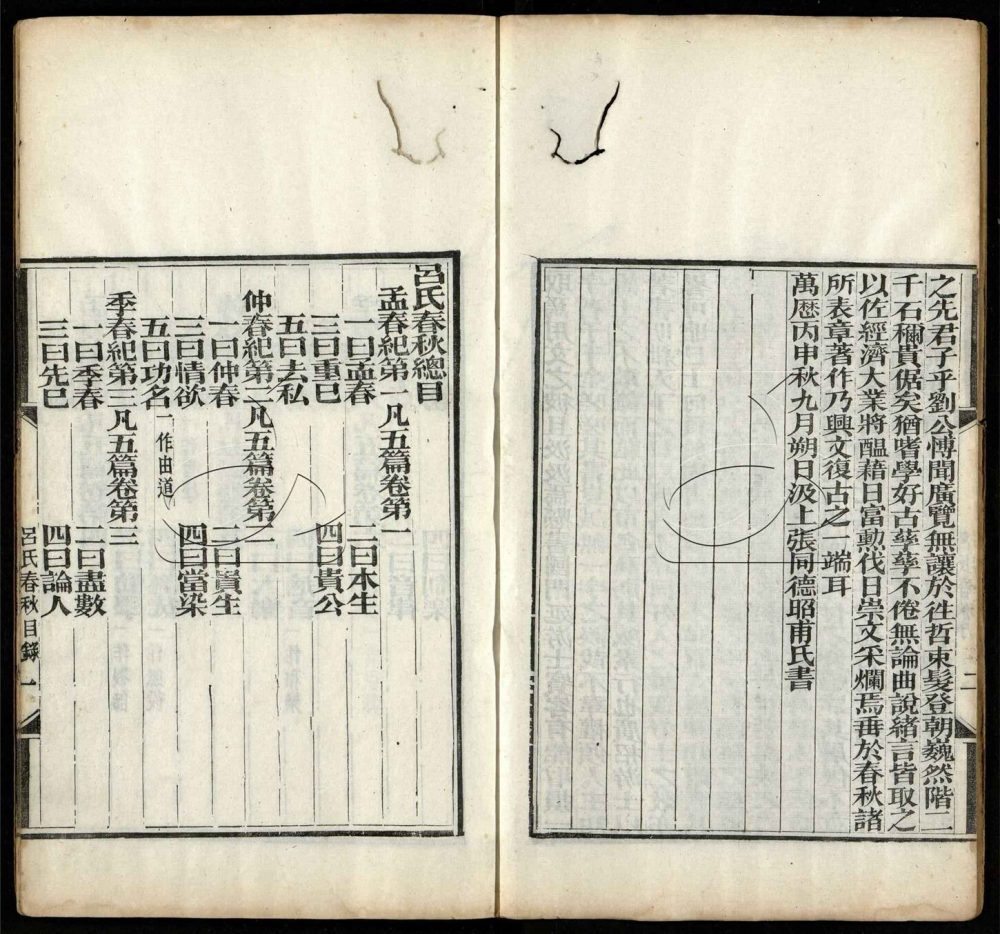 之先君子乎劉公愽聞廣覽無讓於徃哲束髪登朝巍然階二
千石穪貴倨矣猶嗜學好古孳孳不倦無論曲說緒言皆取之
以佐經濟大業將醞藉日富勳伐日崇文采爛焉乖於春秋諸
所表章著作乃興文復古之一端耳
萬歷丙申秋九月朔日汲上張同德昭甫氏書
二
呂氏春秋總目
孟春紀第一凡五篇卷第一
一曰孟春 二曰本生
三曰重巳 四曰貴公
五曰去私
仲春紀第二凡五篇卷第二
一曰仲春 二曰貴生
三曰情欲 四曰當染
五曰功名一作由道
季春紀第三凡五篇卷第三
一曰季春 二曰盡數
三曰先巳 四曰論人
呂氏春秋目錄 一